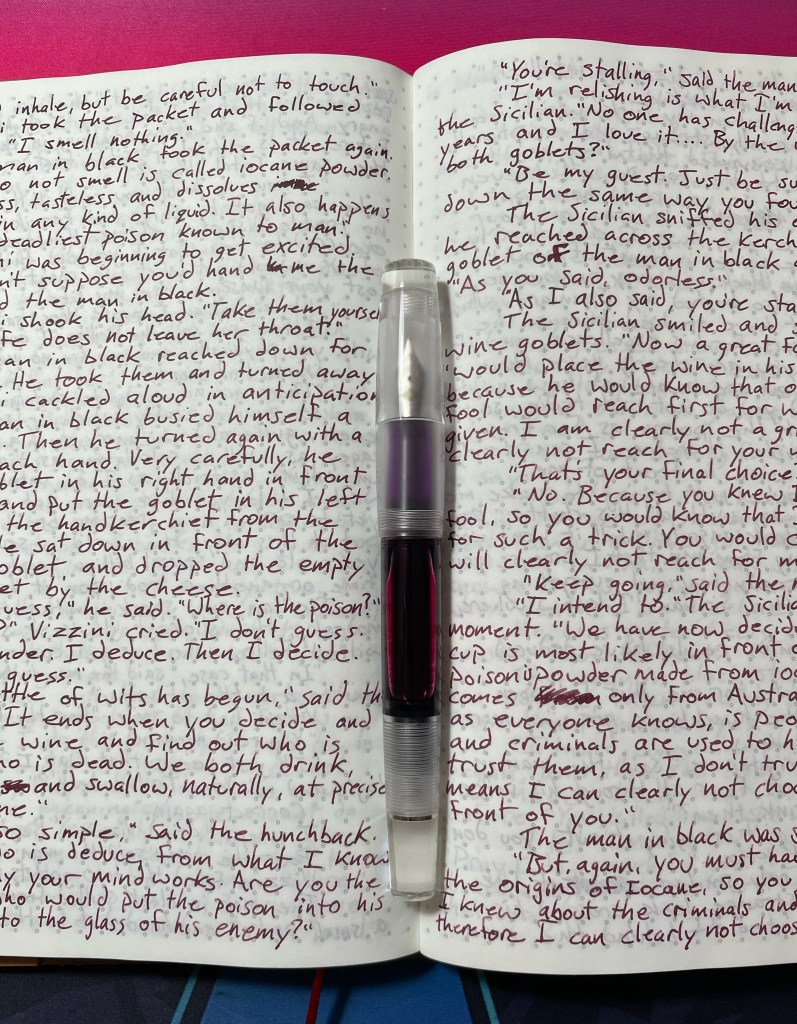 inhale, but be careful not to touch."
i took the packet and followed
"I smell nothing."
man in black took the packet again.
o not smell is called iocane powder.
ss, tasteless and dissolves
in any kind of liquid. It also happens
deadliest poison known to man."
ni was beginning to get excited.
n't suppose you'd hand me the
d the man in black.
i shook his head. "Take them yourself
fe does not leave her throat."
an in black reached down for
. He took them and turned away
i cackled aloud in anticipation
an in black busied himself a
. Then he turned again with a
ach hand. Very carefully, he
blet in his right hand in front
and put the goblet in his left
the handkerchief from the
e sat down in front of the
oblet, and dropped the empty
et by the cheese.
uess," he said. "Where is the poison?"
?" Vizzini cried. "I don't guess.
nder. I deduce. Then I decide.
guess."
ttle of wits has begun," said th
It ends when you decide and
wine and find out who is
ho is dead. We both drink,
and swallow, naturally, at precise
me."
so simple," said the hunchback.
do is deduce, from what I know
ay your mind works. Are you the
who would put the poison into his
to the glass of his enemy?"
"You're stalling," said the man
"I'm relishing is what I'm
the Sicilian. "No one has challeng
years and I love it.... By the w
both goblets?"
"Be my guest. Just be su
down the same way you fou
The Sicilian sniffed his o
he reached across the kerch
goblet of the man in black a
"As you said, odorless."
"As I also said, you're sta
The Sicilian smiled and s
wine goblets. "Now a great fo
would place the wine in his
because he would know that o
fool would reach first for w
given. I am clearly not a gr
clearly not reach for your w
"That's your final choice?
"No. Because you knew I
fool, so you would know that I
for such a trick. You would c
will clearly not reach for m
"Keep going," said the m
"I intend to." The Sicilia
moment. "We have now decid
cup is most likely in front o
poison is powder made from ioc
comes only from Austra
as everyone knows, is peop
and criminals are used to h
trust them, as I don't tru
means I can clearly not choo
front of you."
The man in black was s
"But, again, you must hav
the origins of Iocane, so you
I knew about the criminals and
therefore I can clearly not choos